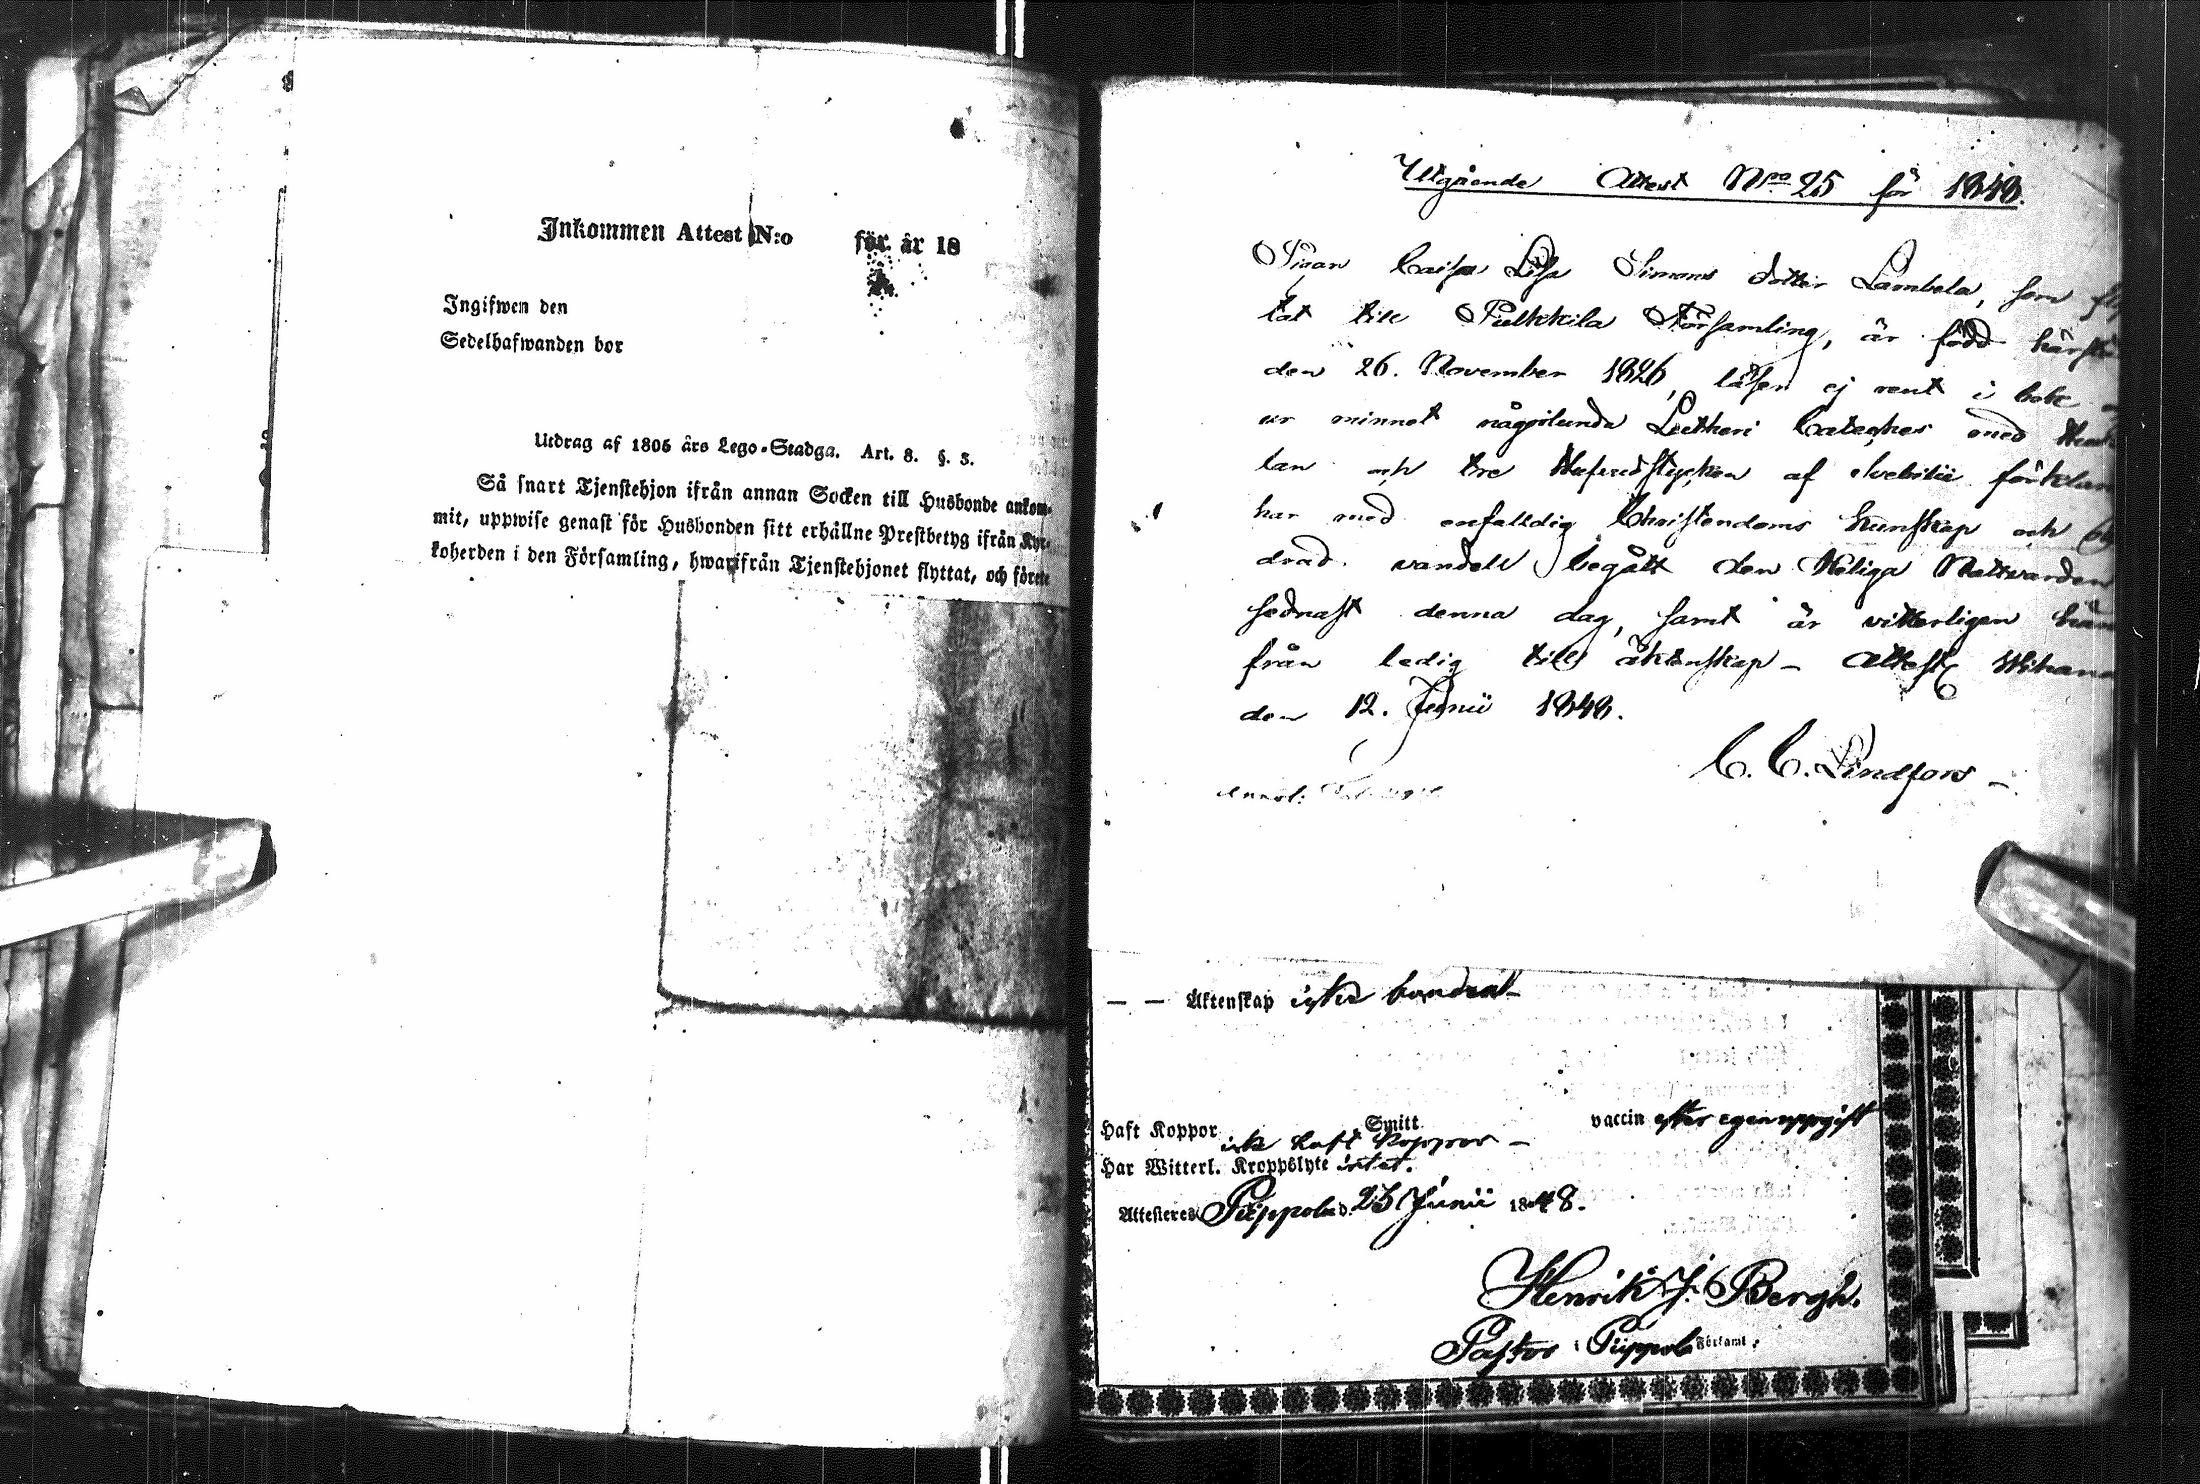 Inkommen Attest N:o för år 18
Ingifwen den
Sedelhafwanden bor
Utdrag af 1805 års Lego-Stadga. Art. 8. §. 3.
Så snart Tjenstehjon ifrån annan Socken till Husbonde ankom-
mit, uppwise genast för Husbonden sitt erhållne Prestbetyg ifrån Kyr-
koherden i den Församling, hwarifrån Tjenstehjonet flyttat, och förete
Utgående Attest N:o 25 för 1848.
Pigan Caisa Lisa Simons dotter Lambela, som
tat till Pulkkila Församling, är född
den 26. November 1826, läser ej rent i bok
ur minnet någorlunda Lutheri Cateches med
lan och tre Hufvudstycken af Svebilii
har med enfaldig Christendoms kunskap och
drad vandel begått den Heliga Nattvarden
sednast denna dag, samt är vitterligen
från ledig till äktenskap - Attest
den 12. Junii 1848.
C. C. Lindfors -
— — Äktenskap
Haft Koppor Smitt vaccin efter egen uppgift
icke haft koppor -
Har Witterl. Kroppslyte intet.
Attesteres Piippola d. 23 Junii 1848.
Henrik J. Bergh.
Pastor i Piippola Förſaml.